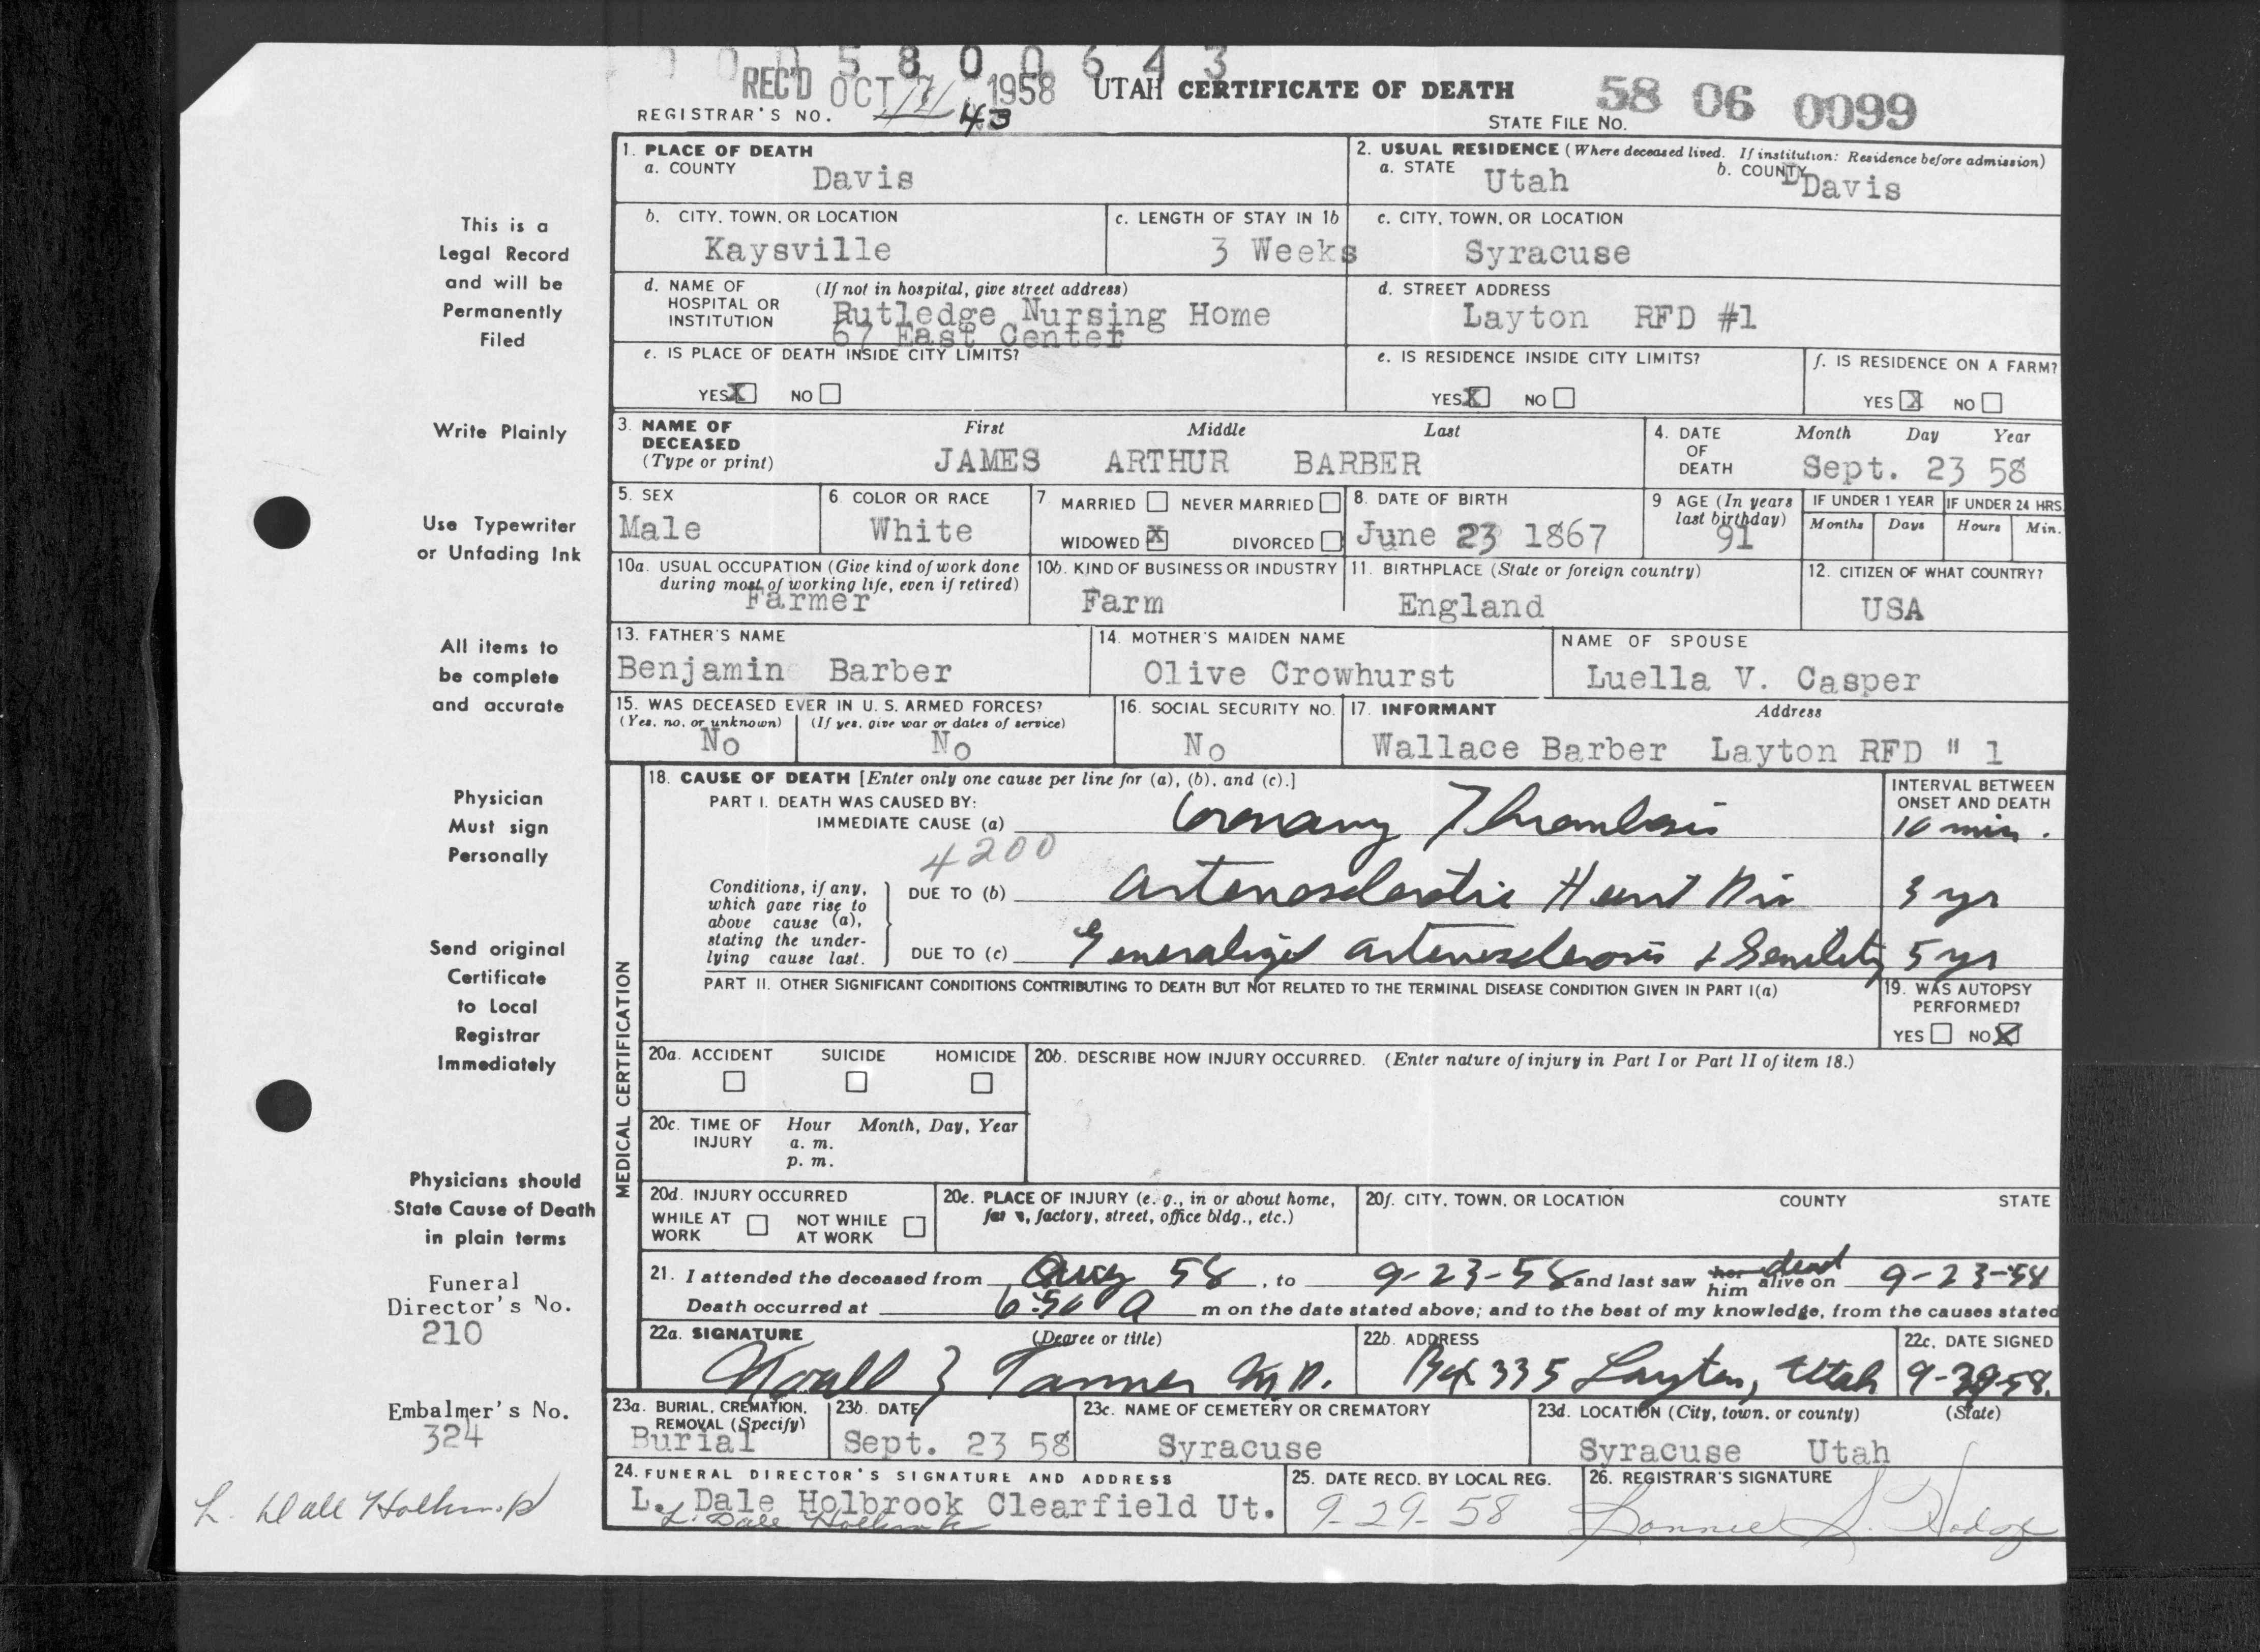 0 0 0 5 8 0 0 6 4 3
REC'D OCT 7 1958 UTAH CERTIFICATE OF DEATH 58 06 0099
REGISTRAR'S NO. 43 STATE FILE NO.
1. PLACE OF DEATH
a. COUNTY Davis
2. USUAL RESIDENCE (Where deceased lived. If institution: Residence before admission)
a. STATE Utah b. COUNTY Davis
b. CITY, TOWN, OR LOCATION Kaysville
c. LENGTH OF STAY IN 1b 3 Weeks
c. CITY, TOWN, OR LOCATION Syracuse
d. NAME OF HOSPITAL OR INSTITUTION (If not in hospital, give street address)
Rutledge Nursing Home
67 East Center
d. STREET ADDRESS
Layton RFD #1
e. IS PLACE OF DEATH INSIDE CITY LIMITS?
YES X NO
e. IS RESIDENCE INSIDE CITY LIMITS?
YES X NO
f. IS RESIDENCE ON A FARM?
YES X NO
3. NAME OF DECEASED (Type or print) First Middle Last
JAMES ARTHUR BARBER
4. DATE OF DEATH Month Day Year
Sept. 23 58
5. SEX
Male
6. COLOR OR RACE
White
7 MARRIED NEVER MARRIED
WIDOWED X DIVORCED
8. DATE OF BIRTH
June 23 1867
9 AGE (In years last birthday)
91
IF UNDER 1 YEAR
Months Days
IF UNDER 24 HRS.
Hours Min.
10a. USUAL OCCUPATION (Give kind of work done
during most of working life, even if retired)
Farmer
10b. KIND OF BUSINESS OR INDUSTRY
Farm
11. BIRTHPLACE (State or foreign country)
England
12. CITIZEN OF WHAT COUNTRY?
USA
13. FATHER'S NAME
Benjamin Barber
14. MOTHER'S MAIDEN NAME
Olive Crowhurst
NAME OF SPOUSE
Luella V. Casper
15. WAS DECEASED EVER IN U. S. ARMED FORCES?
(Yes, no, or unknown) (If yes, give war or dates of service)
No No
16. SOCIAL SECURITY NO.
No
17. INFORMANT Address
Wallace Barber Layton RFD " 1
MEDICAL CERTIFICATION
18. CAUSE OF DEATH [Enter only one cause per line for (a), (b), and (c).]
INTERVAL BETWEEN
ONSET AND DEATH
PART I. DEATH WAS CAUSED BY:
IMMEDIATE CAUSE (a) Coronary Thrombosis 10 min.
4200
Conditions, if any,
which gave rise to
above cause (a),
stating the under-
lying cause last.
DUE TO (b) Arteriosclerotic Heart Dis 3 yr
DUE TO (c) Generalized arteriosclerosis & Senility 5 yr
PART II. OTHER SIGNIFICANT CONDITIONS CONTRIBUTING TO DEATH BUT NOT RELATED TO THE TERMINAL DISEASE CONDITION GIVEN IN PART I(a)
19. WAS AUTOPSY
PERFORMED?
YES NO X
20a. ACCIDENT SUICIDE HOMICIDE
20b. DESCRIBE HOW INJURY OCCURRED. (Enter nature of injury in Part I or Part II of item 18.)
20c. TIME OF INJURY Hour Month, Day, Year
a. m.
p. m.
20d. INJURY OCCURRED
WHILE AT WORK NOT WHILE AT WORK
20e. PLACE OF INJURY (e. g., in or about home,
farm, factory, street, office bldg., etc.)
20f. CITY, TOWN, OR LOCATION COUNTY STATE
21. I attended the deceased from Aug 58, to 9-23-58 and last saw her him alive dead on 9-23-58
Death occurred at 6:50 A m on the date stated above; and to the best of my knowledge, from the causes stated
22a. SIGNATURE (Degree or title)
Noall Z Tanner M.D.
22b. ADDRESS
Box 335 Layton, Utah
22c. DATE SIGNED
23a. BURIAL, CREMATION,
REMOVAL (Specify)
Burial
23b. DATE
Sept. 23 58
23c. NAME OF CEMETERY OR CREMATORY
Syracuse
23d. LOCATION (City, town, or county) (State)
Syracuse Utah
24. FUNERAL DIRECTOR'S SIGNATURE AND ADDRESS
L. Dale Holbrook Clearfield Ut.
L. Dale Holbrook
25. DATE RECD. BY LOCAL REG.
9-29-58
26. REGISTRAR'S SIGNATURE
Bonnie S. Hodge
This is a
Legal Record
and will be
Permanently
Filed
Write Plainly
Use Typewriter
or Unfading Ink
All items to
be complete
and accurate
Physician
Must sign
Personally
Send original
Certificate
to Local
Registrar
Immediately
Physicians should
State Cause of Death
in plain terms
Funeral
Director's No.
210
Embalmer's No.
324
L. Dale Holbrook